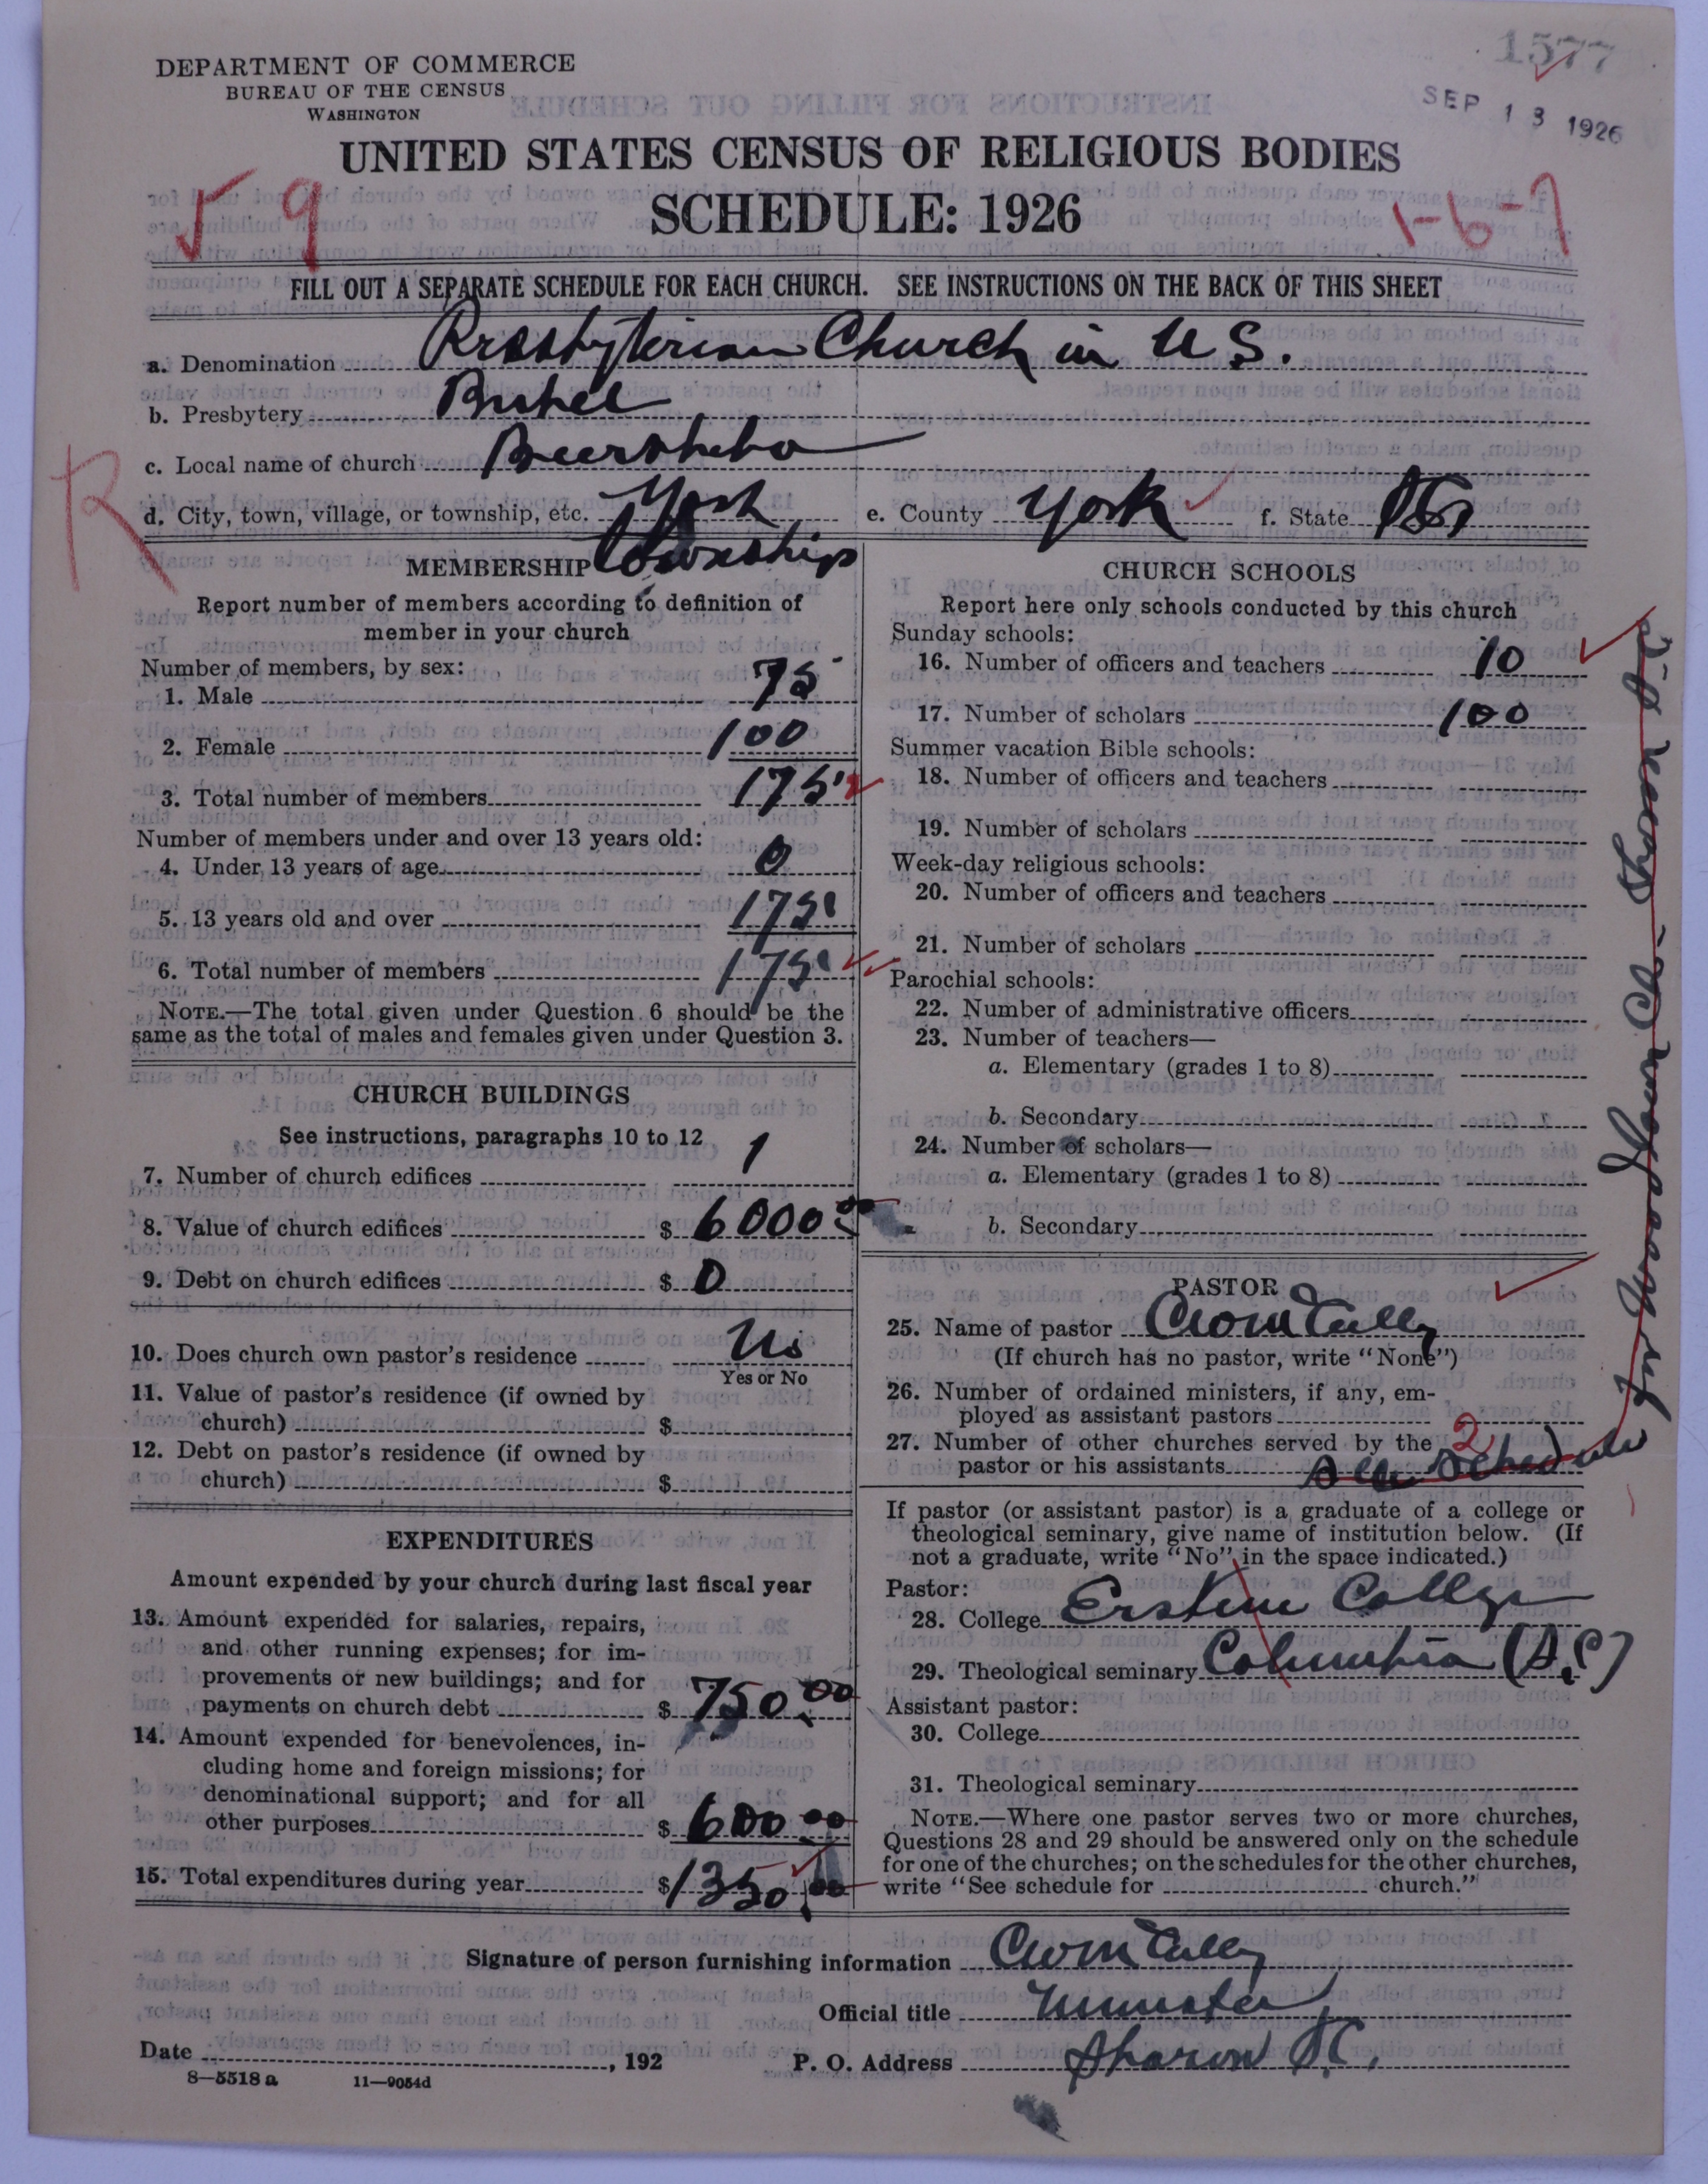 1577
SEP 13 1926
DEPARTMENT OF COMMERCE
BUREAU OF THE CENSUS
WASHINGTON
UNITED STATES CENSUS OF RELIGIOUS BODIES
SCHEDULE: 1926
9
1-6-7
FILL OUT A SEPARATE SCHEDULE FOR EACH CHURCH. SEE INSTRUCTIONS ON THE BACK OF THIS SHEET
a. Denomination Presbyterian Church in U.S.
b. Presbytery Bethel
c. Local name of church Beersheba
R
d. City, town, village, or township, etc. York township
e. County York f. State S.C.
MEMBERSHIP
Report number of members according to definition of
member in your church
Number of members, by sex:
1. Male 75
2. Female 100
3. Total number of members 175
Number of members under and over 13 years old:
4. Under 13 years of age 0
5. 13 years old and over 175
6. Total number of members 175
NOTE.—The total given under Question 6 should be the
same as the total of males and females given under Question 3.
CHURCH BUILDINGS
See instructions, paragraphs 10 to 12
7. Number of church edifices 1
8. Value of church edifices $ 6000.00
9. Debt on church edifices $ 0
10. Does church own pastor's residence No
Yes or No
11. Value of pastor's residence (if owned by
church) $
12. Debt on pastor's residence (if owned by
church) $
EXPENDITURES
Amount expended by your church during last fiscal year
13. Amount expended for salaries, repairs,
and other running expenses; for im-
provements or new buildings; and for
payments on church debt $ 750.00
14. Amount expended for benevolences, in-
cluding home and foreign missions; for
denominational support; and for all
other purposes $ 600.00
15. Total expenditures during year $ 1350.00
CHURCH SCHOOLS
Report here only schools conducted by this church
Sunday schools:
16. Number of officers and teachers 10
17. Number of scholars 100
Summer vacation Bible schools:
18. Number of officers and teachers
19. Number of scholars
Week-day religious schools:
20. Number of officers and teachers
21. Number of scholars
Parochial schools:
22. Number of administrative officers
23. Number of teachers—
a. Elementary (grades 1 to 8)
b. Secondary
24. Number of scholars—
a. Elementary (grades 1 to 8)
b. Secondary
PASTOR
25. Name of pastor
(If church has no pastor, write "None")
26. Number of ordained ministers, if any, em-
ployed as assistant pastors
27. Number of other churches served by the 2
pastor or his assistants See Schedule
for Woodlawn Ch- Sharon S-C
If pastor (or assistant pastor) is a graduate of a college or
theological seminary, give name of institution below. (If
not a graduate, write "No" in the space indicated.)
Pastor:
28. College Erskine College
29. Theological seminary Columbia (S.C)
Assistant pastor:
30. College
31. Theological seminary
NOTE.—Where one pastor serves two or more churches,
Questions 28 and 29 should be answered only on the schedule
for one of the churches; on the schedules for the other churches,
write "See schedule for church."
Signature of person furnishing information
Official title Minister
Date , 192
P. O. Address Sharon S.C.
8—5518 a 11—9054d